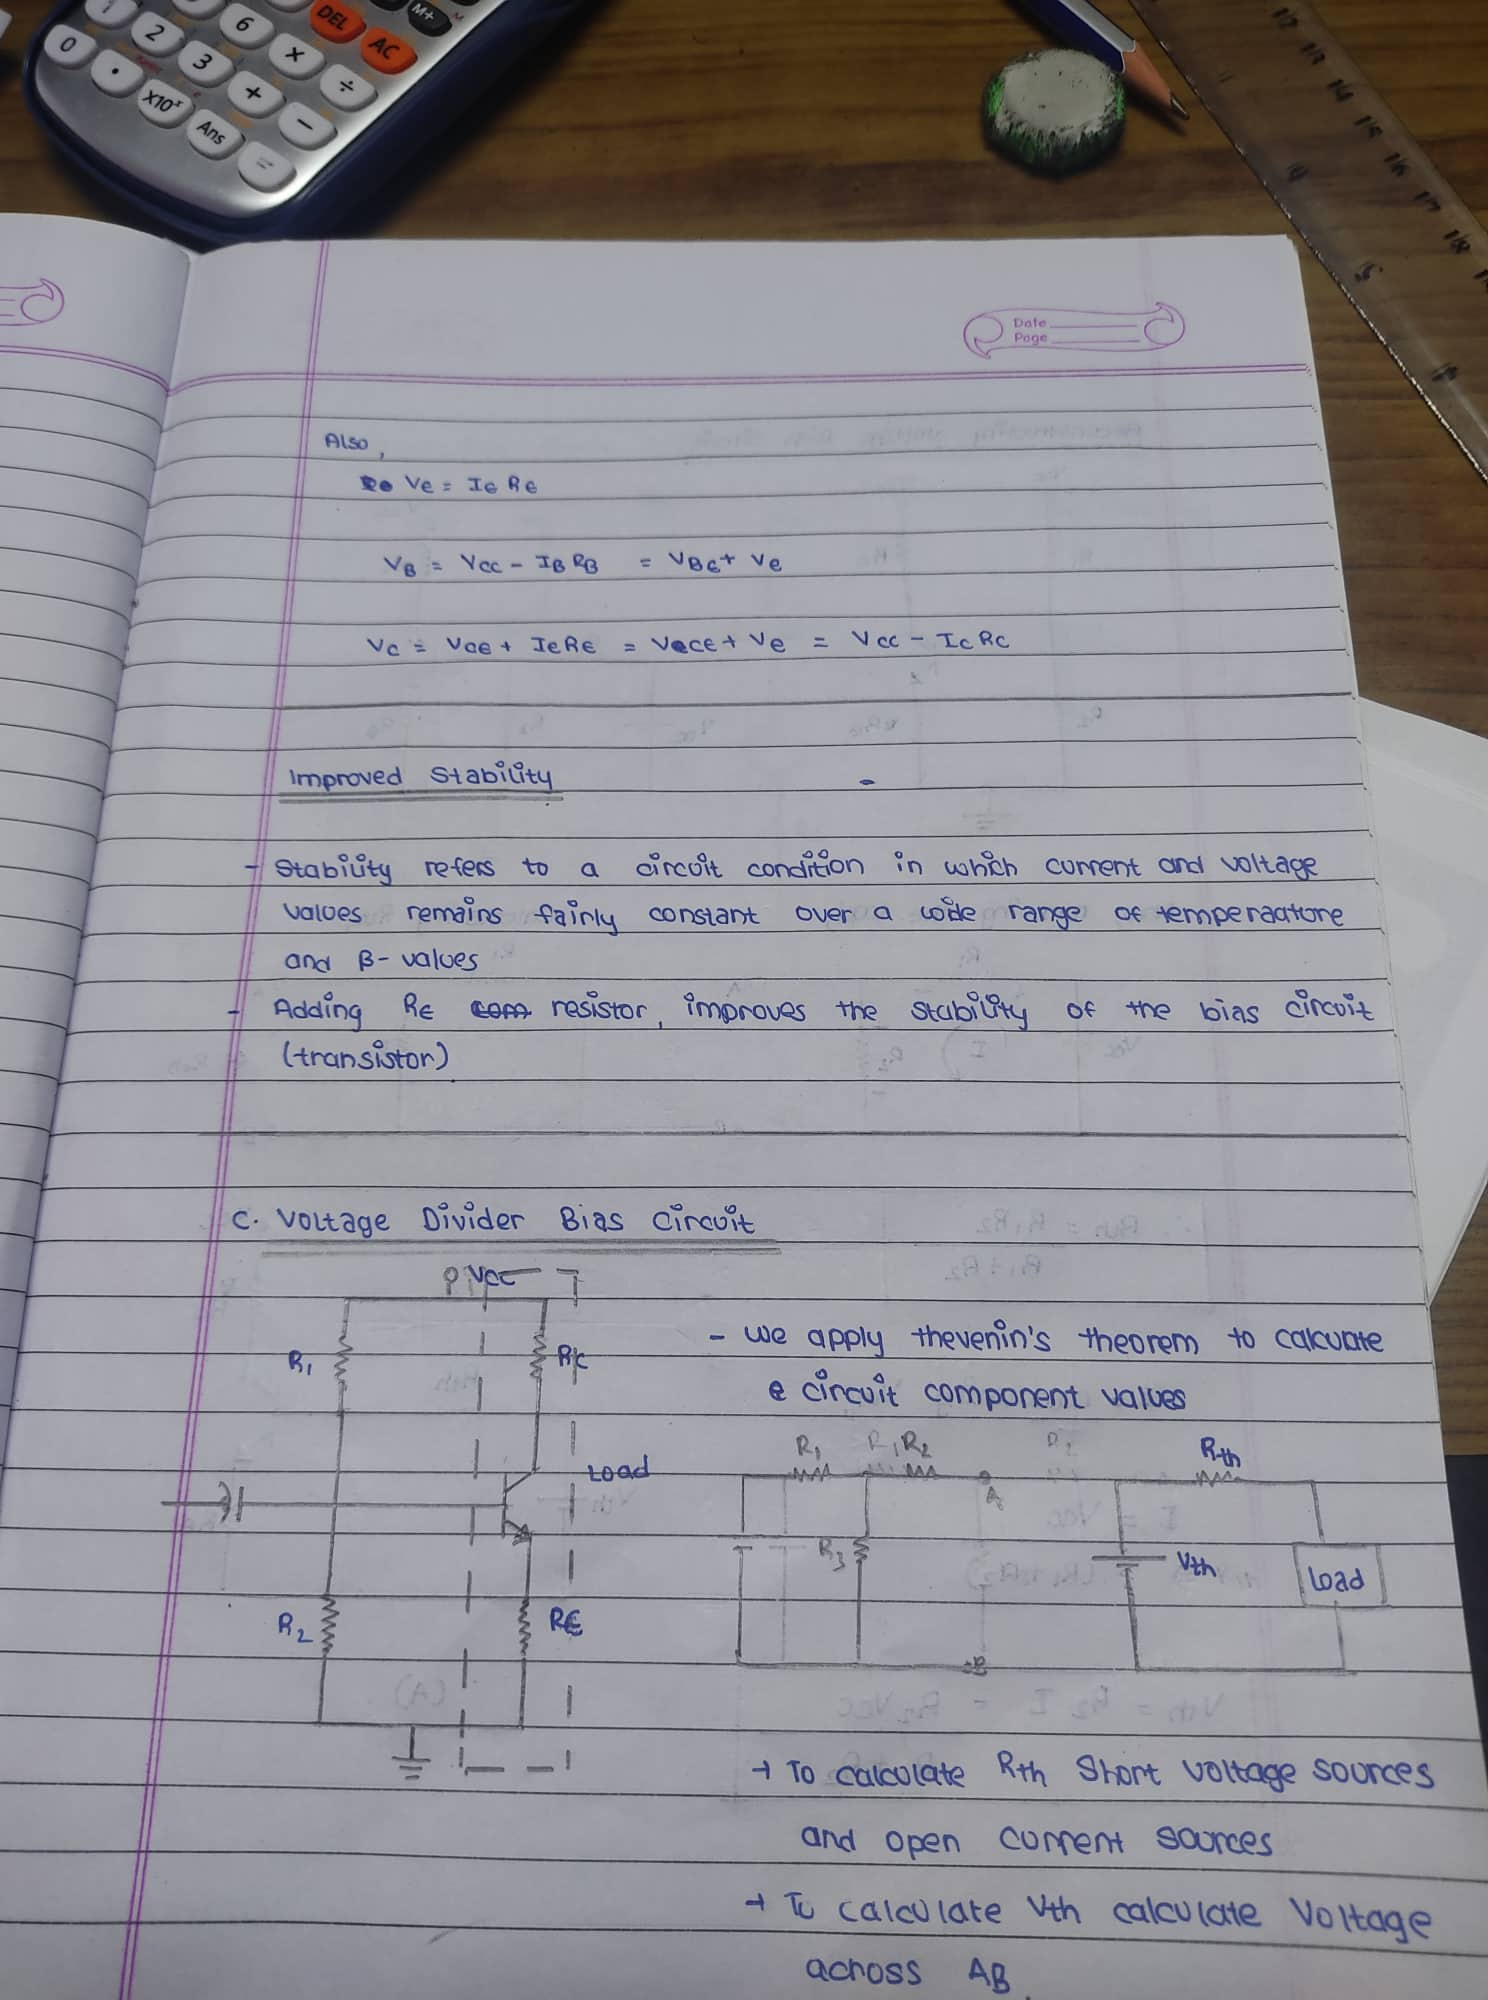 DEL
AC
M+
6
1
2
3
×
÷
0
.
+
−
×10ˣ
Ans
=
12
13
14
15
16
17
18
Date
Page
Also,
Ve = IE RE
VB = VCC - IB RB = VBE + Ve
VC = VCE + IERE = VCE + Ve = VCC - IC RC
Improved Stability
- Stability refers to a circuit condition in which current and voltage
values remains fairly constant over a wide range of temperaature
and β- values
- Adding RE resistor, improves the stability of the bias circuit
(transistor)
C. Voltage Divider Bias Circuit
VCC
R1
RC
Load
R2
RE
- we apply thevenin's theorem to calcuate
circuit component values
R1
R2
A
R3
B
Rth
Vth
Load
→ To calculate Rth Short voltage sources
and open current sources
→ To calculate Vth calculate Voltage
across AB